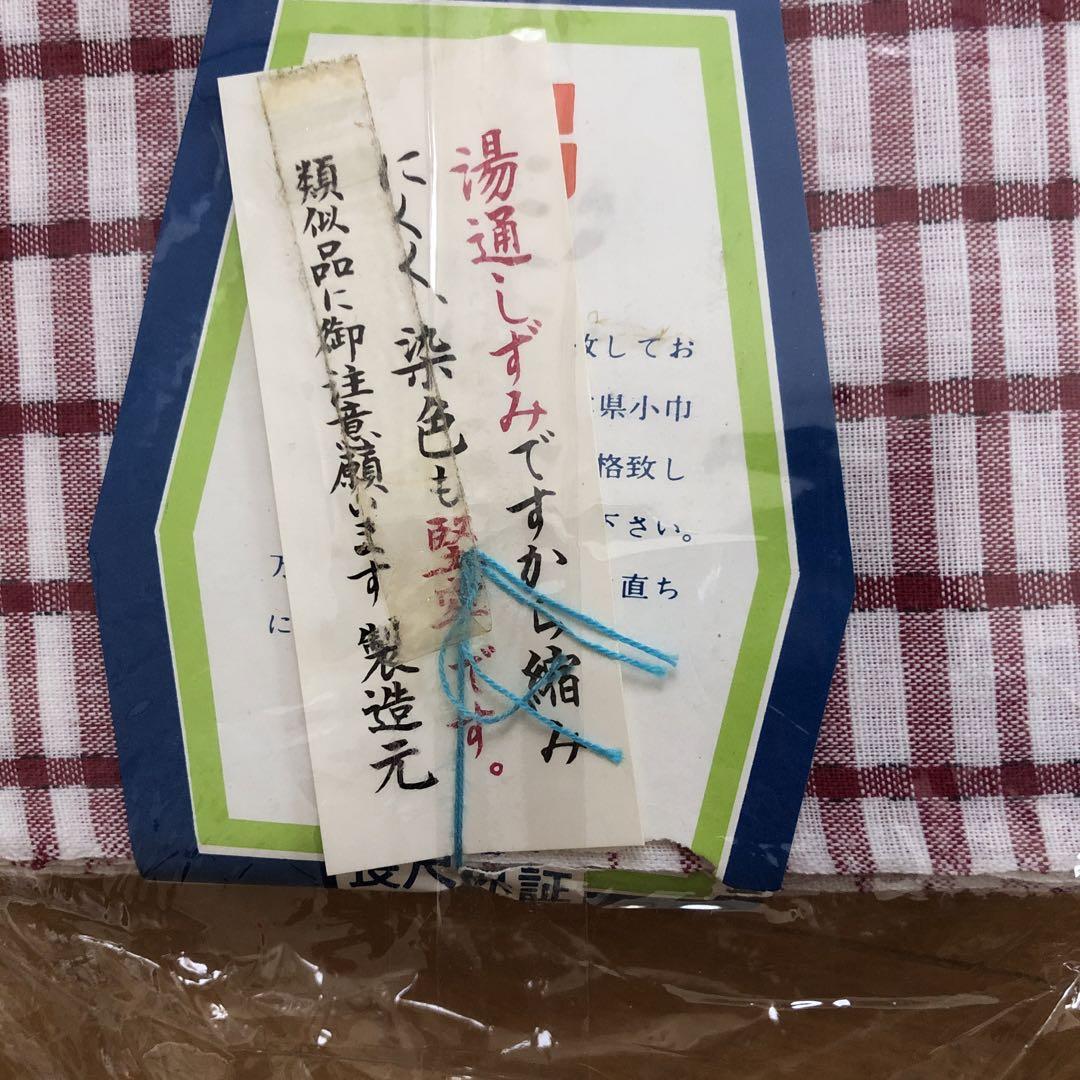 湯通しずみですから縮み
にくく、染色も堅牢です。
類似品に御注意願います 製造元
致してお
県小巾
格致し
下さい。
直ち
に
証